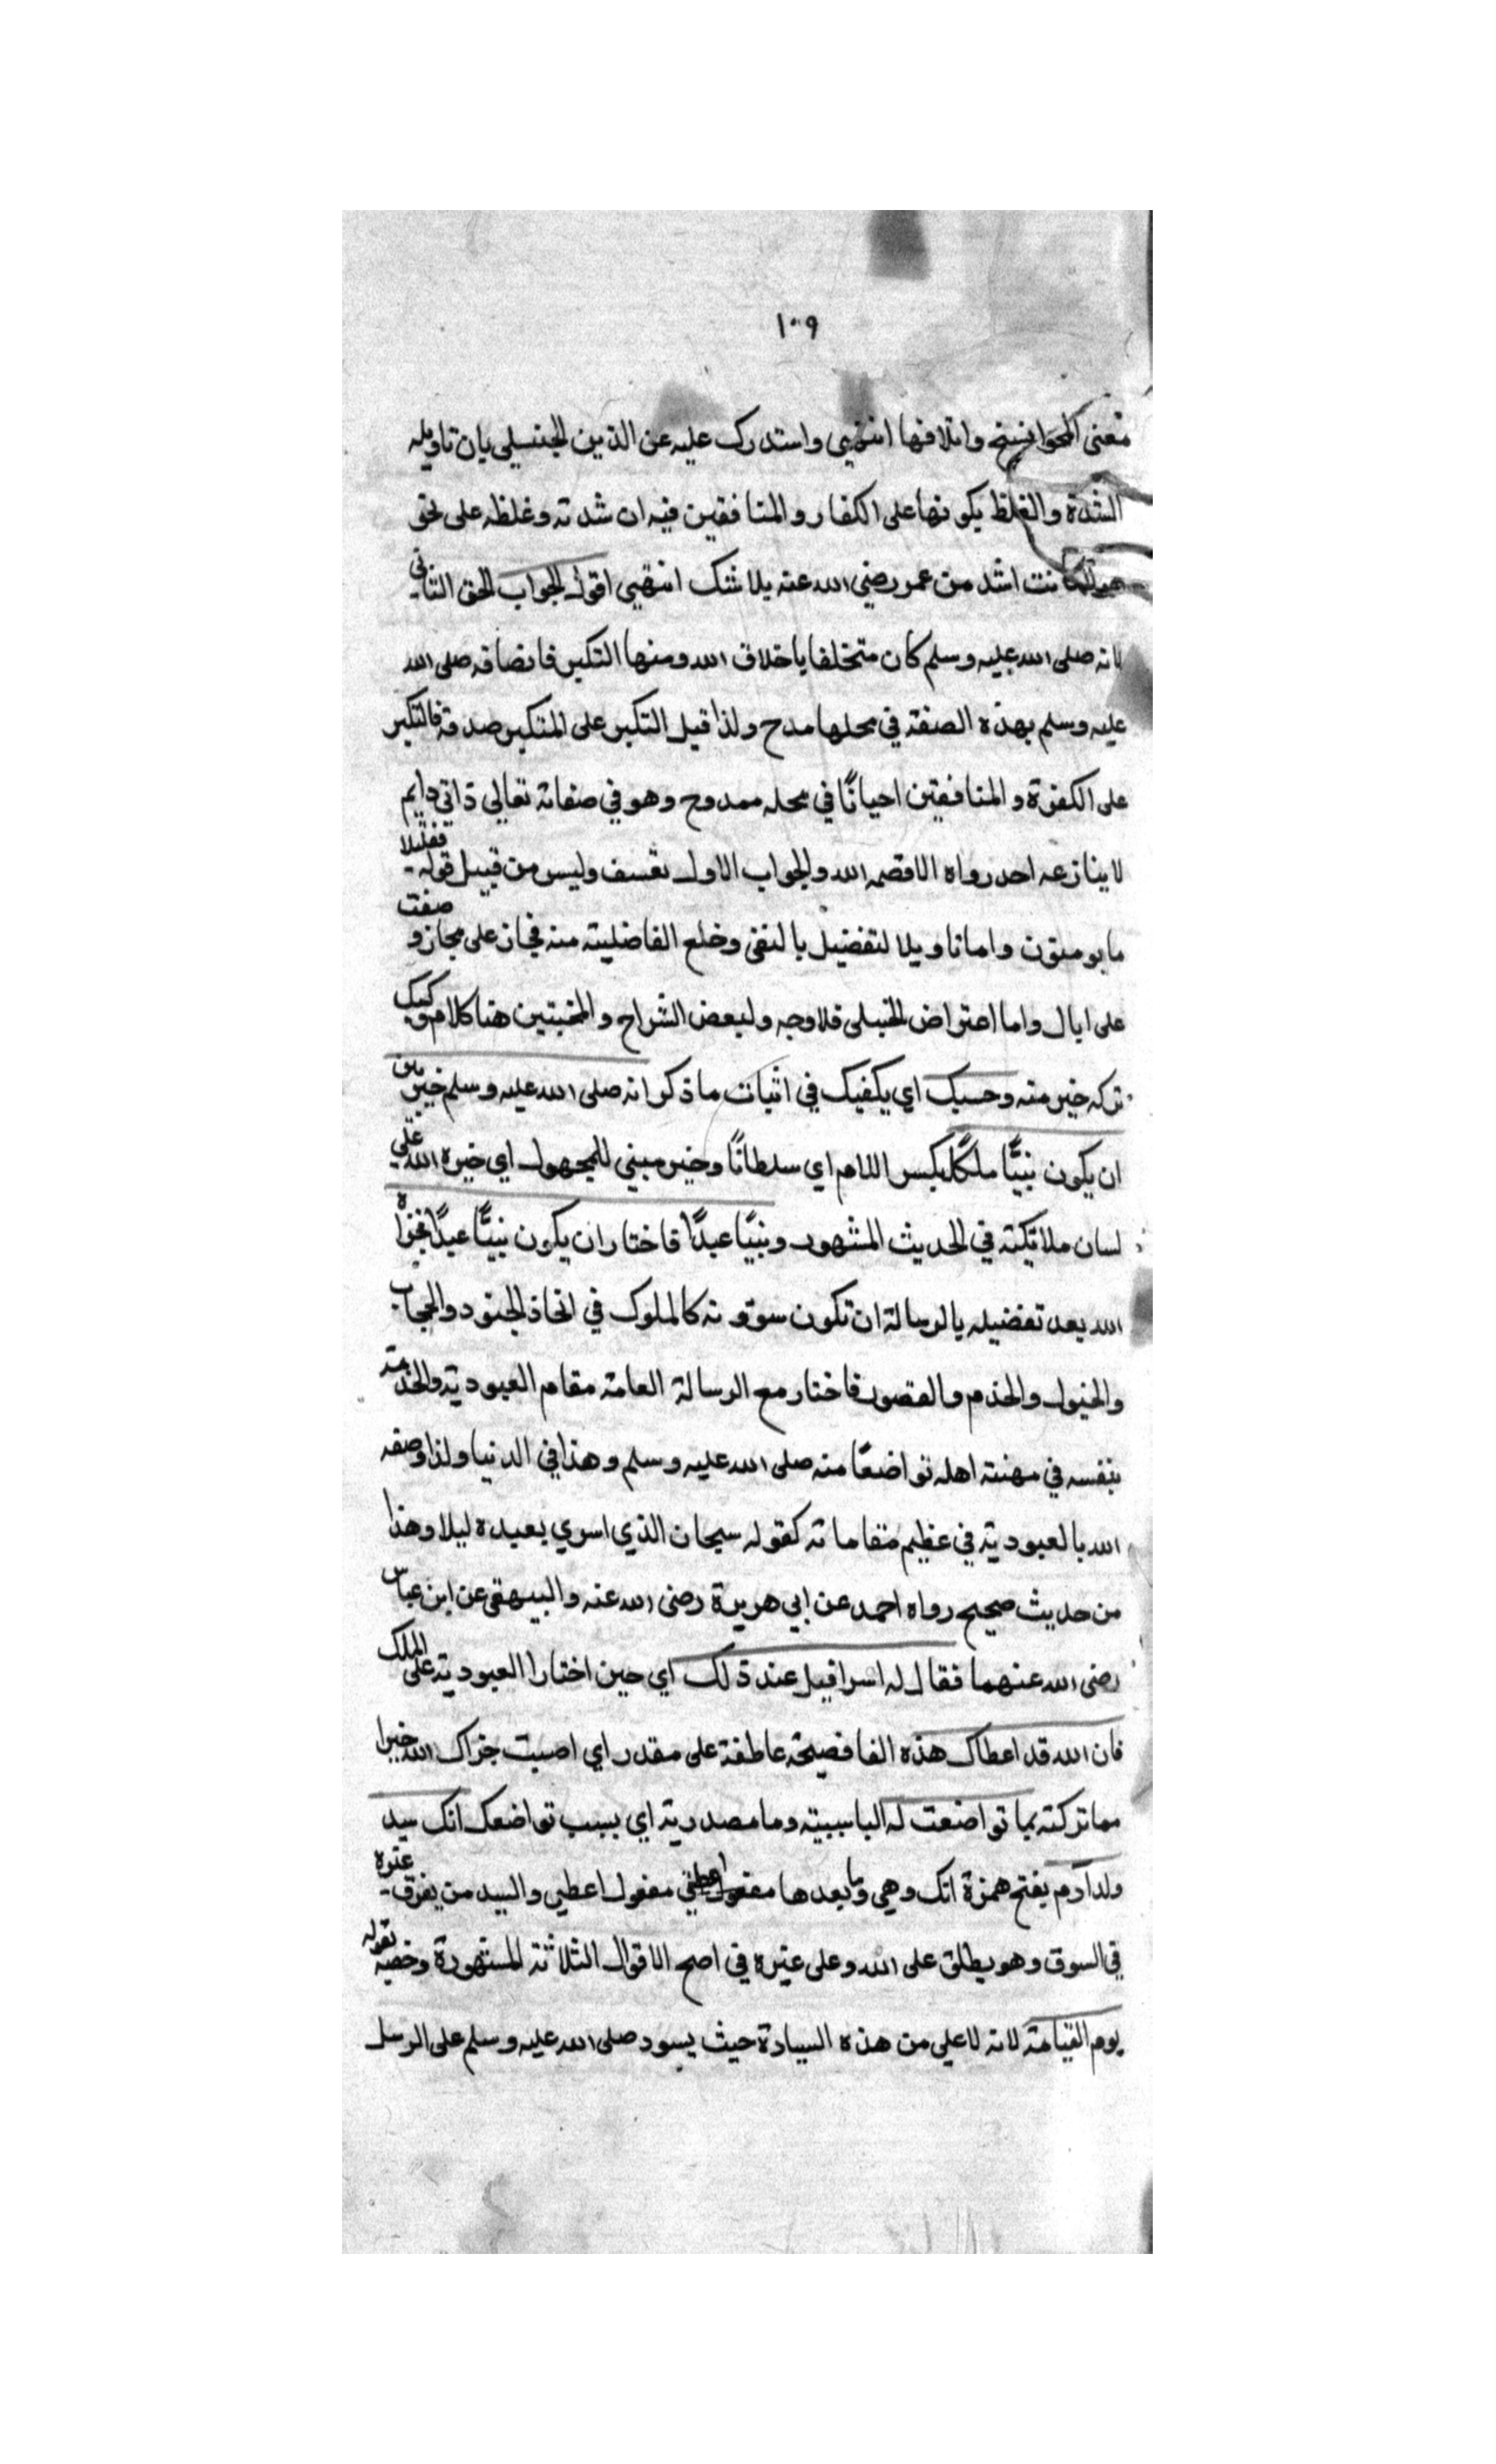 ١٠٩
معنى المحو انسخ واتلافها انتهى واستدرك عليه عن الذين الجنبلي بان تاويله
الشدة والغلظ بكونها على الكفار والمنافقين فيه ان شدته وغلظه على نحو
كانت اشد من عمر رضي الله عنه بلا شك انتهى اقول الجواب الحق الثاني
لانه صلى الله عليه وسلم كان متخلقا باخلاق الله ومنها التكبر فاتصافه صلى الله
عليه وسلم بهذه الصفة في محلها مدح ولذا قيل التكبر على المتكبر صدقة فالتكبر
على الكفرة والمنافقين احيانًا في محله ممدوح وهو في صفاته تعالى ذاتي دايم
لا ينازعه احد رواه الا قصمه الله والجواب الاول تعسف وليس من قبيل قوله فقليلا
ما يومنون واما تاويلا لتفضيل بالنفى وخلع الفاضلية منه فمجاز على مجاز و صفت
على ابال واما اعتراض الحنبلى فلا وجه ولبعض الشراح والمحبتين هنا كلام ركيك
تركه خير منه وحسبك اي يكفيك في اثبات ما ذكر انه صلى الله عليه وسلم خير بين
ان يكون نبيًّا ملكًا بكسر اللام اي سلطانًا وخير مبني للمجهول اي خيره الله على
لسان ملائكته في الحديث المشهور ونبيًا عبدًا فاختار ان يكون نبيًّا عبدًا فخيره
الله بعد تفضيله بالرسالة ان تكون سوقونه كالملوك في اتخاذ الجنود والحجاب
والخيول والخدم والقصور فاختار مع الرسالة العامة مقام العبودية والخدمة
بنفسه في مهنته اهله تواضعًا منه صلى الله عليه وسلم وهذا في الدنيا ولذا وصفه
الله بالعبودية في عظيم مقاماته كقوله سبحان الذي اسري بعبده ليلا وهذا
من حديث صحيح رواه احمد عن ابي هريرة رضى الله عنه والبيهقى عن ابن عباس
رضى الله عنهما فقال له اسرافيل عند ذلك اي حين اختارا العبودية على الملك
فان الله قد اعطاك هذه الفا فصيحة عاطفة على مقدر اي اصبت جزاك الله خيرا
مما تركته بما تواضعت له البا سببية وما مصدرية اي بسبب تواضعك انك سيد
ولد آدم بفتح همزة انك وهي وما بعدها مفعول اعطى مفعول اعطي والسيد من يفوق غيره
في السوق وهو يطلق على الله وعلى غيره في اصح الاقوال الثلاثة المشهورة وخصه بقوله
يوم القيامة لانه لا على من هذه السيادة حيث يسود صلى الله عليه وسلم على الرسل